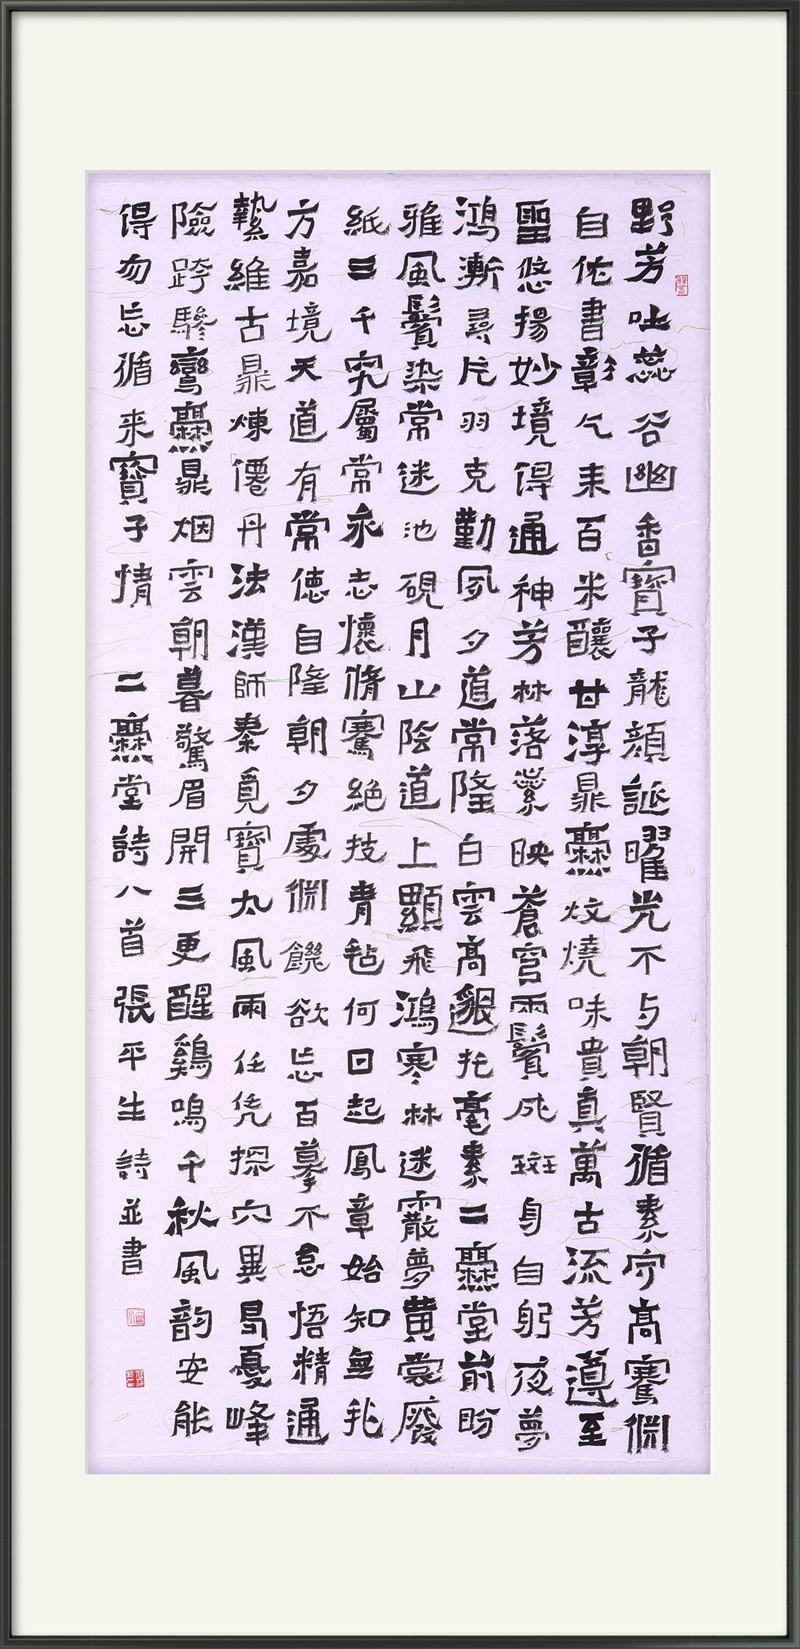 野芳吐蕊谷幽香寶子龍顔誕曜光不与朝賢循素守高騫淵
自佐書彰乞来百米釀甘淳鼎爨炆燒味貴真萬古流芳遵至
聖悠揚妙境得通神芳林落葉映蒼穹雨鬢成斑身自躬夜夢
鴻漸尋片羽克勤夙夕道常隆白雲高邈托毫素二爨堂前盼
雅風鬢染常迷池硯月山陰道上顯飛鴻寒林迷霰夢黄裳廢
紙三千究屬常永志懷脩騫絶技青毡何日起鳳章始知無我
方嘉境天道有常德自隆朝夕處淵饑欲忘百摹不怠悟精通
縶維古鼎煉僊丹法漢師秦覓寶太風雨任凭探穴異易憂峰
險跨驂鸞爨鼎烟雲朝暮驚眉開三更醒鷄鳴千秋風韵安能
得勿忘循来寶子情 二爨堂詩八首 張平生詩並書